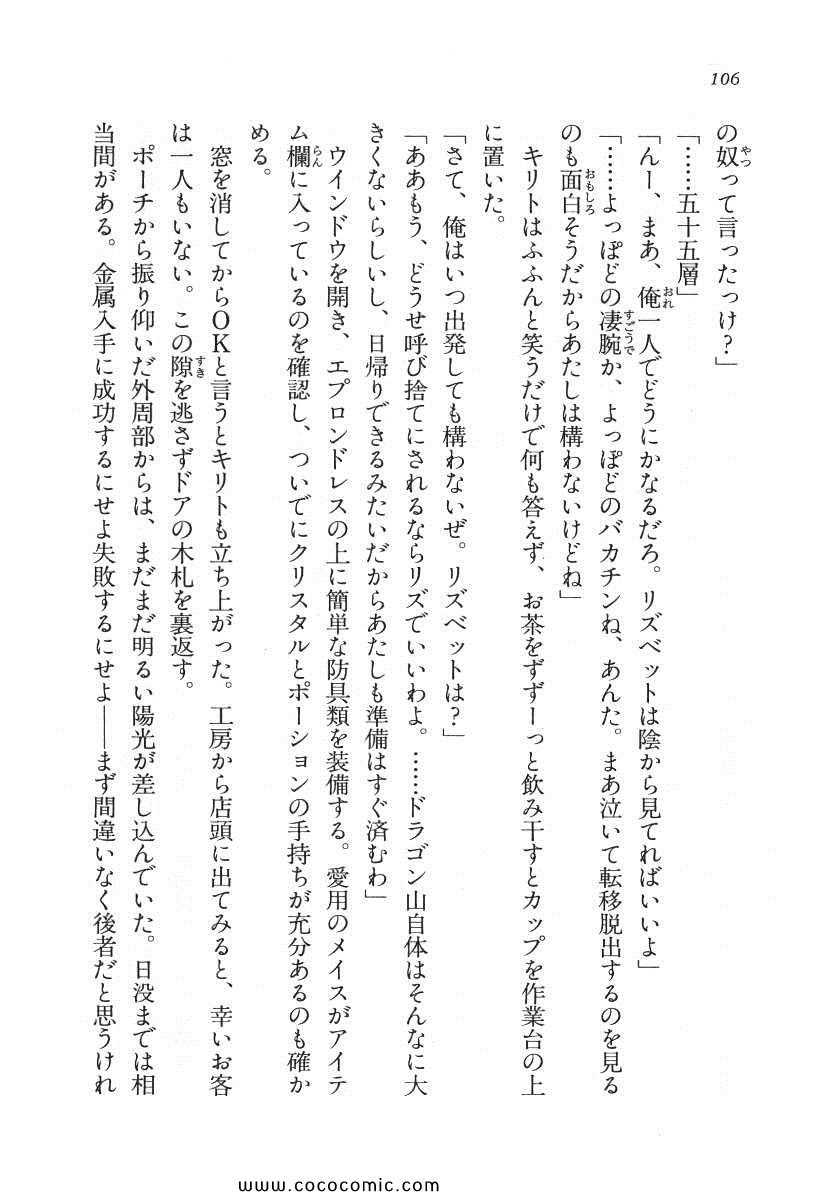 106
の奴って言ったっけ？」
「……五十五層」
「んー、まあ、俺一人でどうにかなるだろ。リズベットは陰から見てればいいよ」
「……よっぽどの凄腕か、よっぽどのバカチンね、あんた。まあ泣いて転移脱出するのを見る
のも面白そうだからあたしは構わないけどね」
キリトはふふんと笑うだけで何も答えず、お茶をずずーっと飲み干すとカップを作業台の上
に置いた。
「さて、俺はいつ出発しても構わないぜ。リズベットは？」
「ああもう、どうせ呼び捨てにされるならリズでいいわよ。……ドラゴン山自体はそんなに大
きくないらしいし、日帰りできるみたいだからあたしも準備はすぐ済むわ」
ウインドウを開き、エプロンドレスの上に簡単な防具類を装備する。愛用のメイスがアイテ
ム欄に入っているのを確認し、ついでにクリスタルとポーションの手持ちが充分あるのも確か
める。
窓を消してからＯＫと言うとキリトも立ち上がった。工房から店頭に出てみると、幸いお客
は一人もいない。この隙を逃さずドアの木札を裏返す。
ポーチから振り仰いだ外周部からは、まだまだ明るい陽光が差し込んでいた。日没までは相
当間がある。金属入手に成功するにせよ失敗するにせよ――まず間違いなく後者だと思うけれ
www.cococomic.com